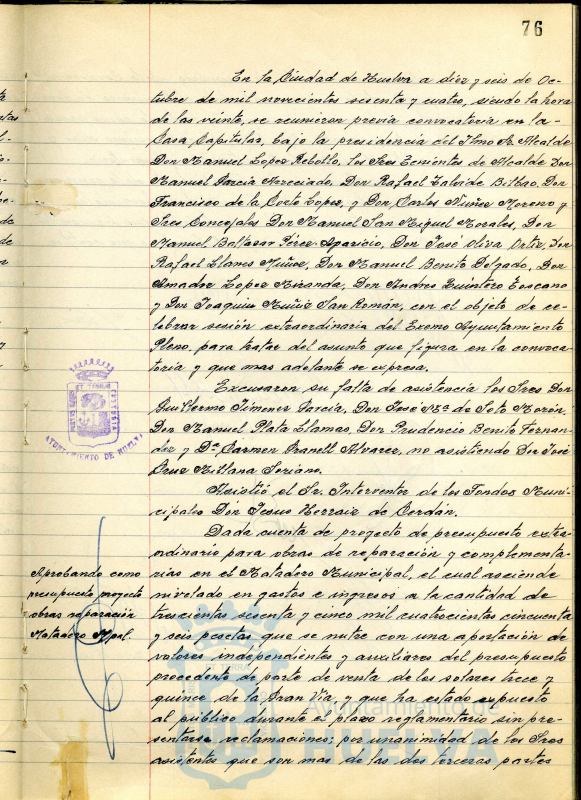 76
En la Ciudad de Huelva a diez y seis de Oc-
tubre de mil novecientos sesenta y cuatro, siendo la hora
de las veinte, se reunieron previa convocatoria en la
Casa Capitular, bajo la presidencia del Ilmo Sr. Alcalde
Don Manuel Lopez Rebollo, los Sres Tenientes de Alcalde Don
Manuel Garcia Don Rafael Bilbao, Don
Francisco de la Corte Lopez, y Don Carlos Nuñez Moreno y
Sres Concejales Don Manuel San Miguel Morales, Don
Manuel Baltasar Pérez Aparicio, Don José Oliva Ortiz, Don
Rafael Llanes Muñoz, Don Manuel Benito Delgado, Don
Amadeo Lopez Miranda, Don Andres Quintero Toscano
y Don Joaquin Muñiz San Román, con el objeto de ce-
lebrar sesión extraordinaria del Excmo Ayuntamiento
Pleno para tratar del asunto que figura en la convoca-
toria y que mas adelante se expresa.
Excusaron su falta de asistencia los Sres Don
Guillermo Jimenez Garcia, Don José Mª de Soto Morón,
Don Manuel Plata Llamas, Don Prudencio Benito Fernan-
dez y Dª Carmen Alvarez, no asistiendo Don José
Cruz Soriano.
Asistió el Sr. Interventor de los Fondos Muni-
cipales Don Jesus Herraiz de
Dada cuenta de proyecto de presupuesto extra-
ordinario para obras de reparación y complementa-
rias en el Matadero Municipal, el cual asciende
nivelado en gastos e ingresos a la cantidad de
trescientas sesenta y cinco mil cuatrocientas cincuenta
y seis pesetas que se nutre con una aportación de
valores independientes y auxiliares del presupuesto
procedente de parte de venta de los solares trece y
quince de la Gran Via, y que ha estado expuesto
al publico durante el plazo reglamentario sin pre-
sentarse reclamaciones; por unanimidad de los Sres
asistentes que son mas de las dos terceras partes
Aprobando como
presupuesto proyecto
obras reparación
Matadero Mpal.
AYUNTAMIENTO DE HUELVA
Ayuntamiento de
HUELVA